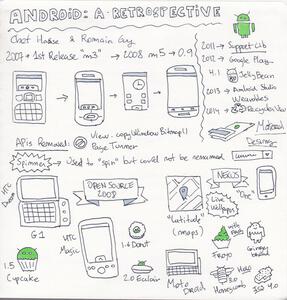 ANDROID: A RETROSPECTIVE
Chet Haase & Romain Guy
2007 → 1st Release "m3" → 2008 m5 → 0.9
2011 → Support Lib
2012 → Google Play
4.1 Jelly Bean
2013 → Android Studio
Wearables
2014 → RecyclerView
Material
Design
APIs Removed:
View.copyWindowBitmap()
Page Turner
Spinner
→ Used to "spin" but could not be renamed
HTC
Dream
G1
OPEN SOURCE
2008
HTC
Magic
1.5
Cupcake
1.6 Donut
2.0 Eclair
"Latitude"
(maps)
Moto Droid
NEXUS
One
Live
Wallpapers
Froyo
Gingerbread
3.0
Honeycomb
Holo
ICS 4.0